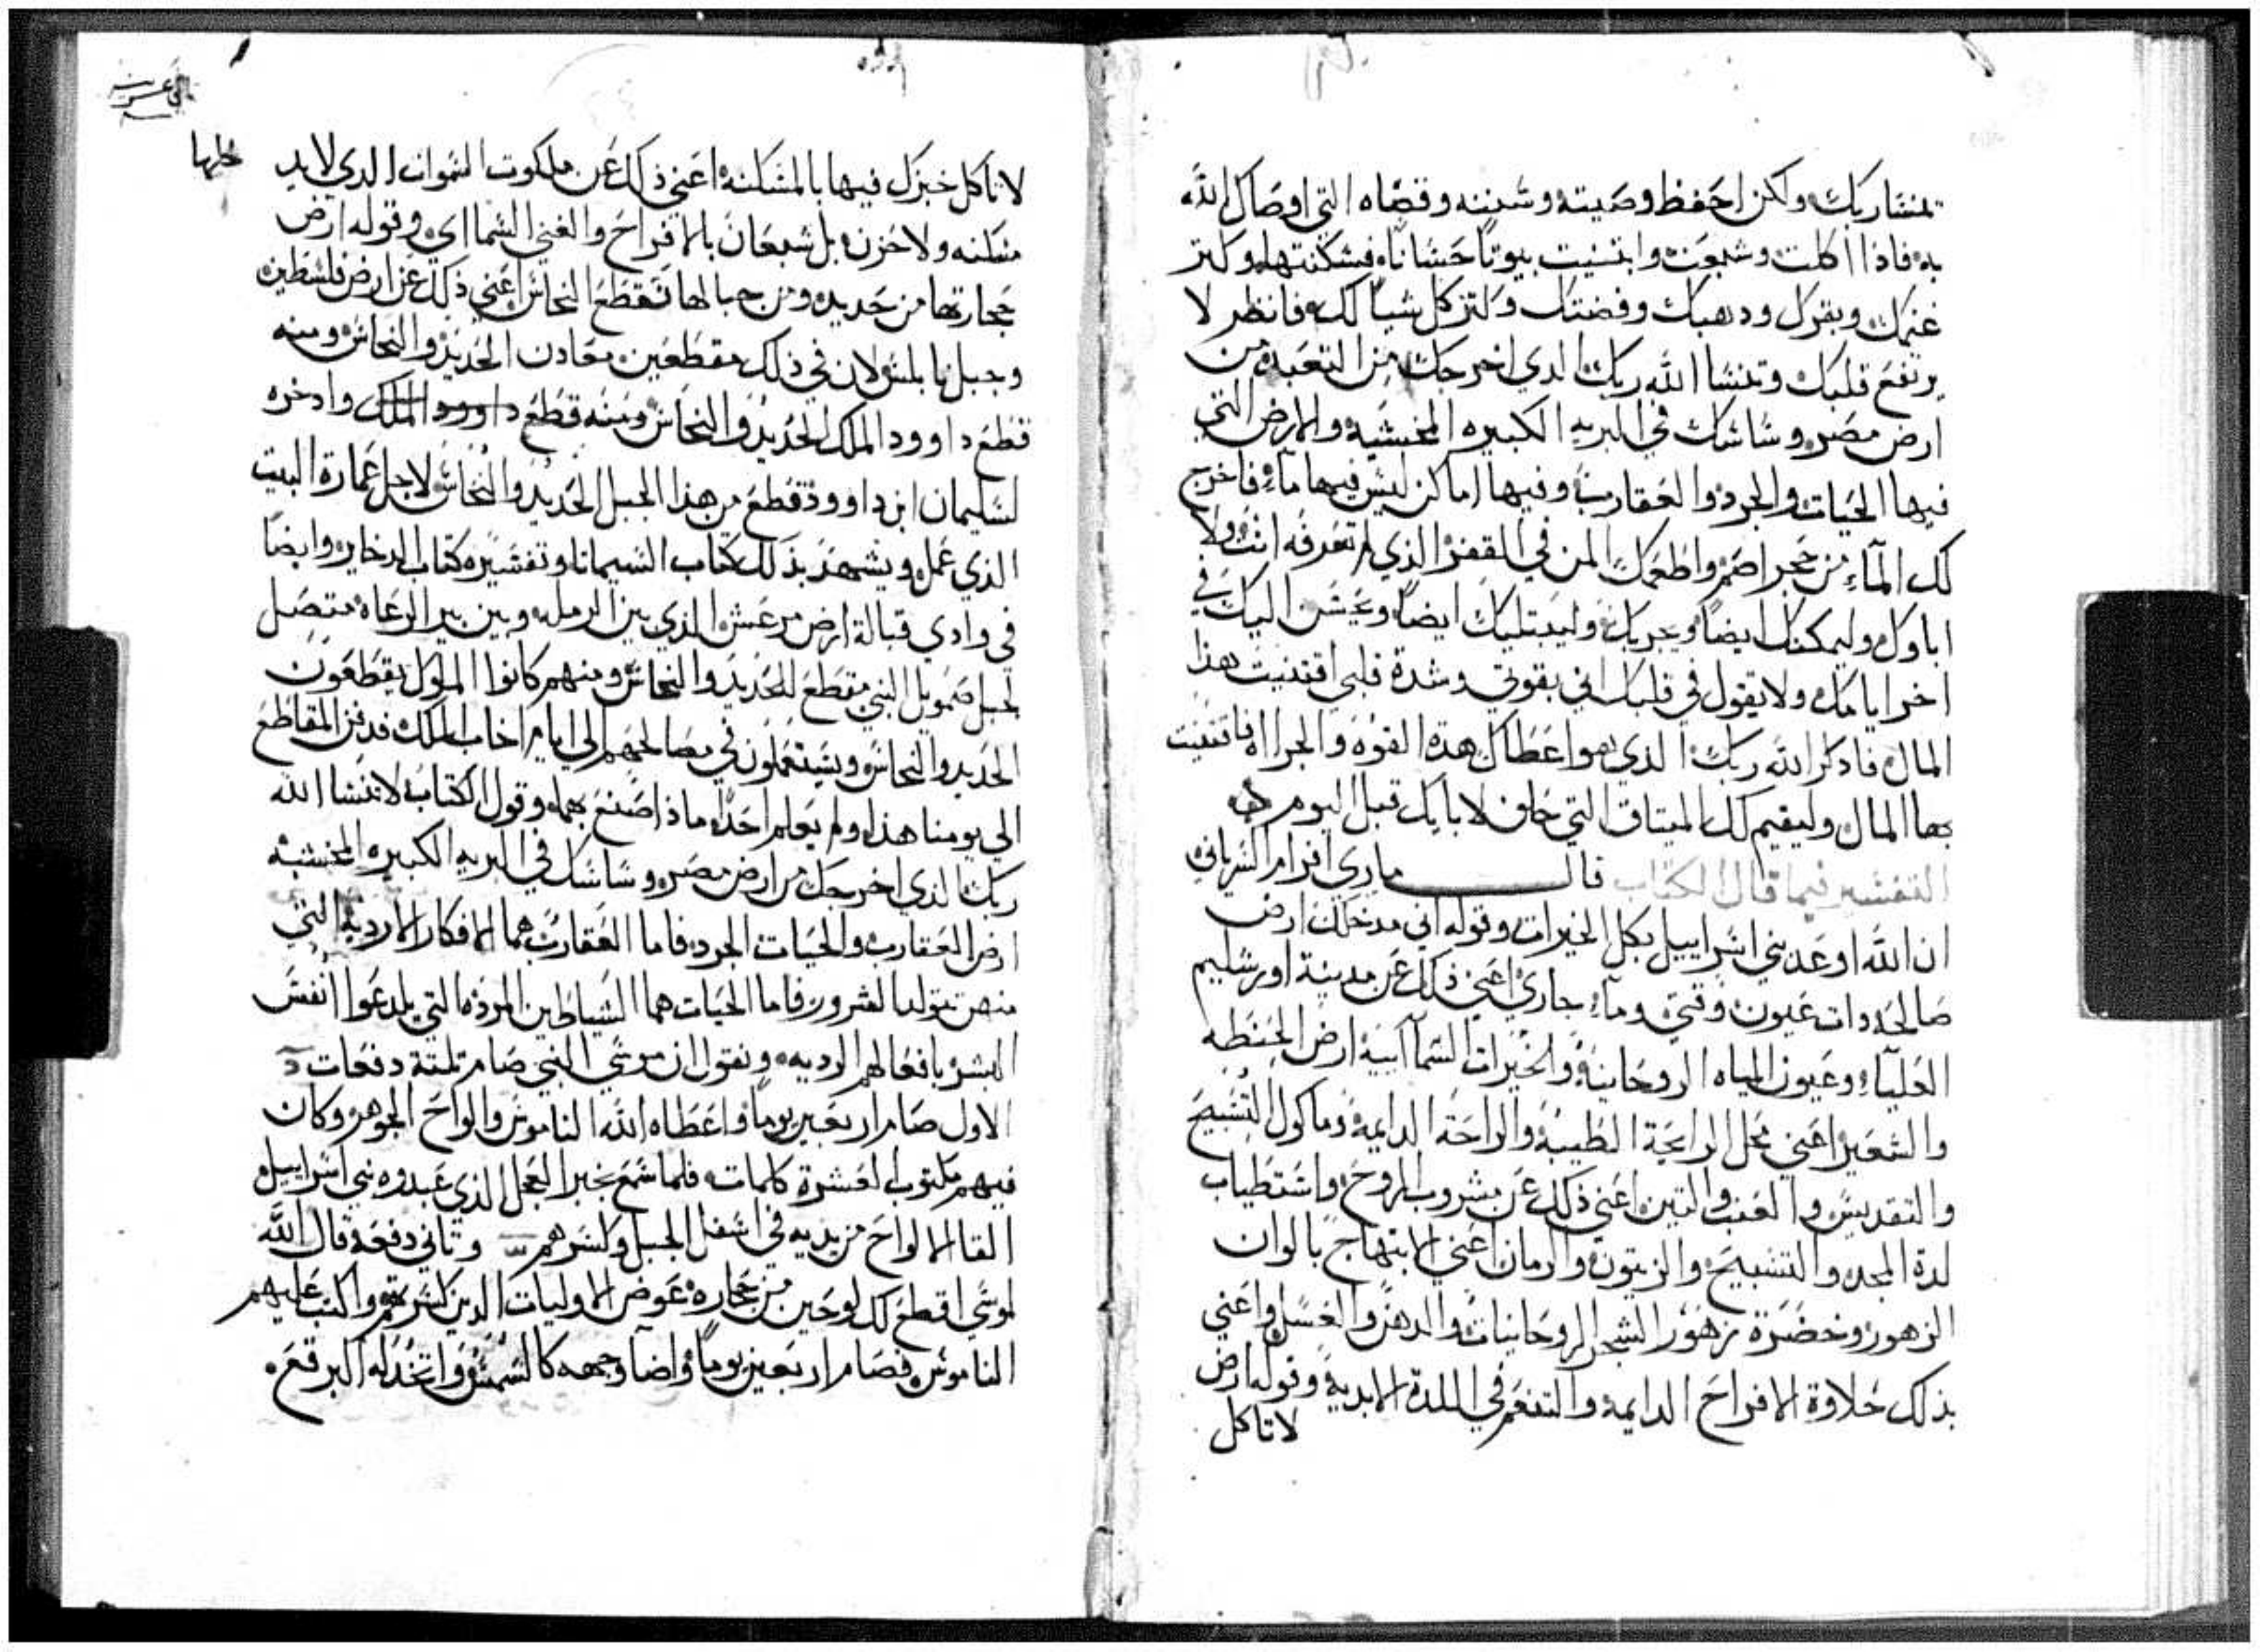 تنسا ربك ولكن احفظ وصيته وسننه وقضاه التي اوصاك الله
به فاذا اكلت وشبعت وابتنيت بيوتا حسانا فسكنتها وكتر
غنمك وبقرك ودهبك وفضتك وكتر كل شيا لك فانظر لا
يرتفع قلبك وتنسا الله ربك الدي اخرجك من التعبد من
ارض مصر وساسك في البريه الكبيره المخشيه والارض التي
فيها الحيات والجرد والعقارب وفيها اماكن ليس فيها مآء فاخرج
لك المآء من حجر اصم واطعمك المن في القفر الذي لم تعرفه انت ولا
اباوك وليمكنك ايضا ويجربك وليبتليك ايضا ويحسن اليك في
اخر ايامك ولا يقول في قلبك اني بقوتي وشدة قلبي اقتنيت هذا
المال فادكر الله ربك الذي هو اعطاك هذة القوه والجراه فاقتنيت
بها المال وليقيم لك الميتاق التي حلف لابايك قبل اليوم
التفسير فيما قال الكتاب قال ماري افرام السرياني
ان الله اوعد بني اسراييل بكل الخيرات وقوله اني مدخلك ارض
صالحه دات عيون وقني ومآء جاري اعني ذلك عن مدينة اورشليم
العليآء وعيون المياه الروحانية والخيرات السمآايية ارض الحنطه
والشعير اعني محل الرايحة الطيبة والراحة الدايمة وماكول التسبيح
والتقديس والعنب والتين اعني ذلك عن مشروب الروح واستطياب
لدة المجد والتسبيح والزيتون والرمان اعني الابتهاج بالوان
الزهور وخضرة زهور الشجر الروحانيات والدهن والعسل واعني
بذلك حلاوة الافراح الدايمه والتنعم في اللدة الابدية وقوله ارض
لا تاكل
لا تاكل خبزك فيها بالمسكنه اعني ذلك عن ملكوت السموات الدي لا يد
مسكنه ولا حزن بل شبعان بالافراح والغني السمااي وقوله ارض
حجارتها من حديد ومن جبالها تقطع النحاس اعني ذلك عن ارض فلسطين
وجبلها لان في ذلك مقطعين معادن الحديد والنحاس ومنه
قطع داوود الملك الحديد والنحاس ومنه قطع داوود الملك وادخره
لسليمان ابن داوود قطع من هذا الجبل الحديد والنحاس لاجل عمارة البيت
الذي عمل ويشهد بذلك كتاب السيمانا وتفسيره كتاب الدخاير وايضا
في وادي قبالة ارض مرعش الذي بين الرمله وبين بير الرعاه متصل
لجبل صمويل النبي مقطع للحديد والنحاس ومنهم كانوا الملوك يقطعون
الحديد والنحاس ويستعملون في مصالحهم الي ايام اخاب الملك فدفن المقاطع
الي يومنا هذا ولم يعلم احدا ماذا صنع بهما وقول الكتاب لا تنسا الله
ربك الذي اخرجك من ارض مصر وساسك في البريه الكبيره المخشيه
ارض العقارب والحيات الجرد فاما العقارب هما الافكار الارديه التي
منهن يتولد الشرور فاما الحيات هما الشياطين المرده التي يلدعوا انفس
البشر بافعالهم الرديه ونقول ان موسي النبي صام تلتة دفعات
الاول صام اربعين يوما واعطاه الله الناموس والواح الجوهر وكان
فيهم مكتوب العشرة كلمات فلما سمع بخبر العجل الذي عبدوه بني اسراييل
القا الالواح من يديه في اسفل الجبل وكسرهم وتاني دفعة قال الله
لموسي اقطع لك لوحين من حجاره عوض الاوليات الدين كسرتهم واكتب عليهم
الناموس فصام اربعين يوما واضآ وجهه كالشمس واتخذ له البرقع